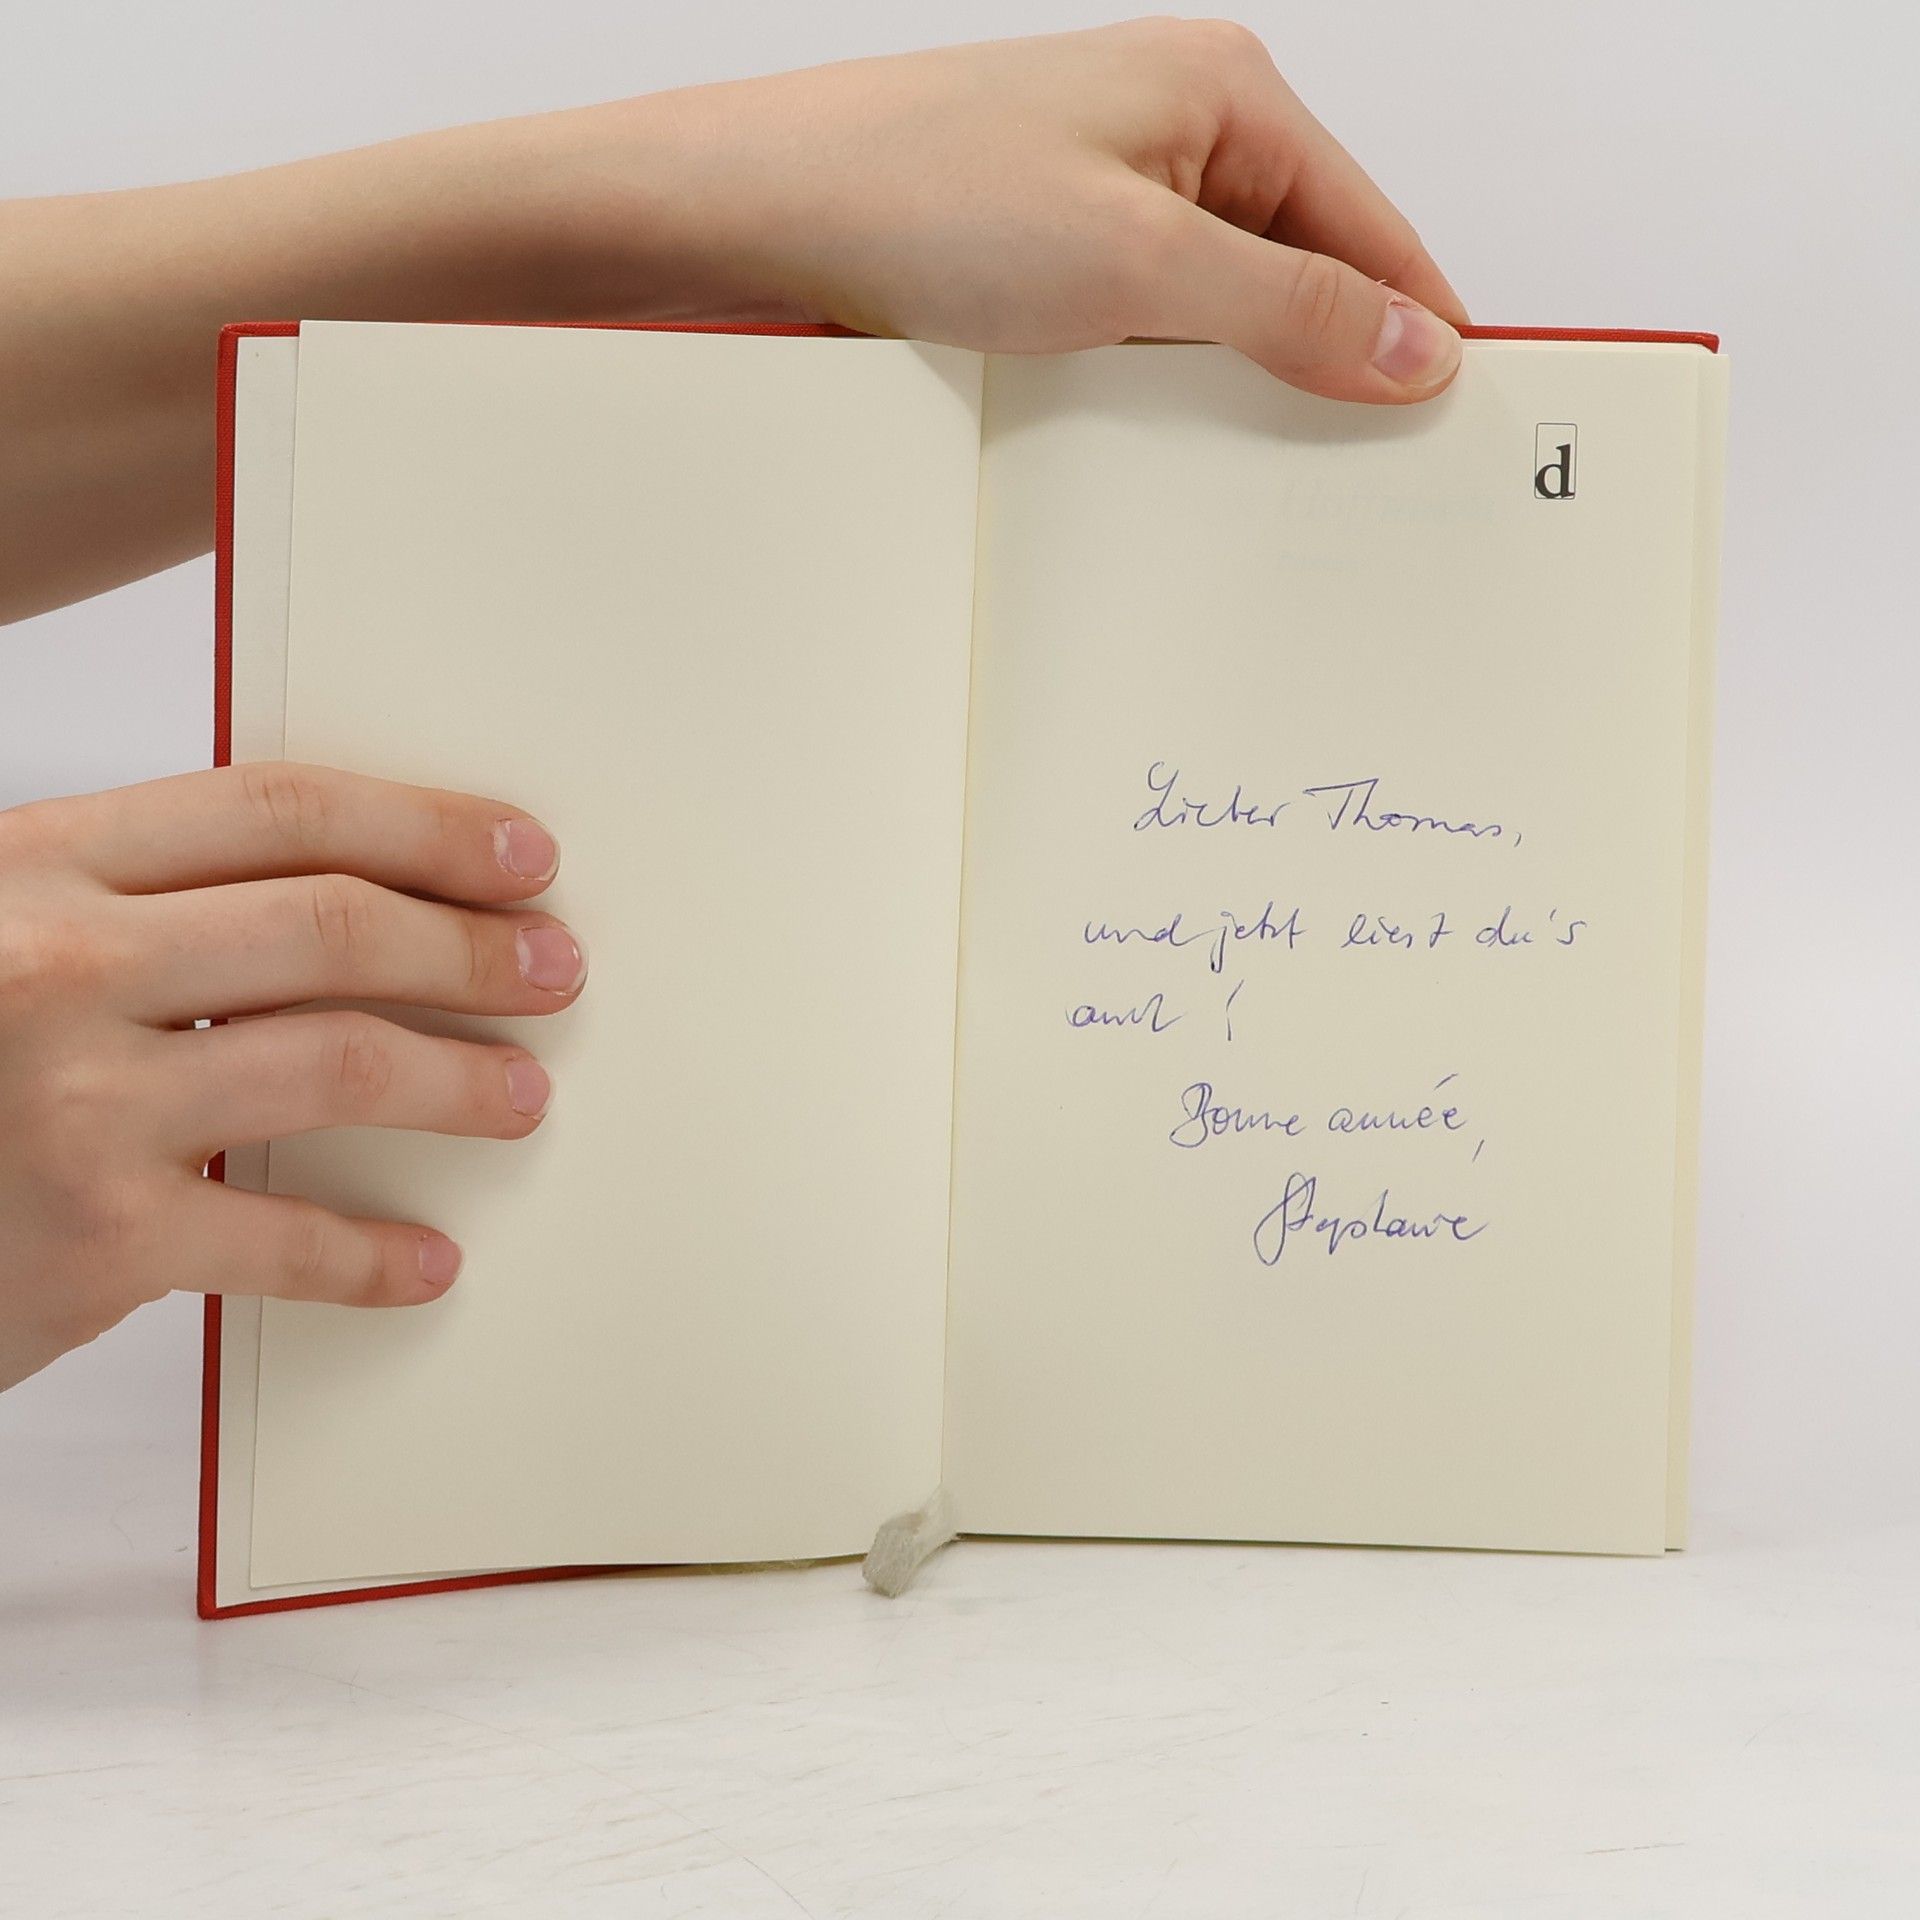 d
Lieber Thomas,
und jetzt liest du's
auch!
Bonne année,
Stephanie